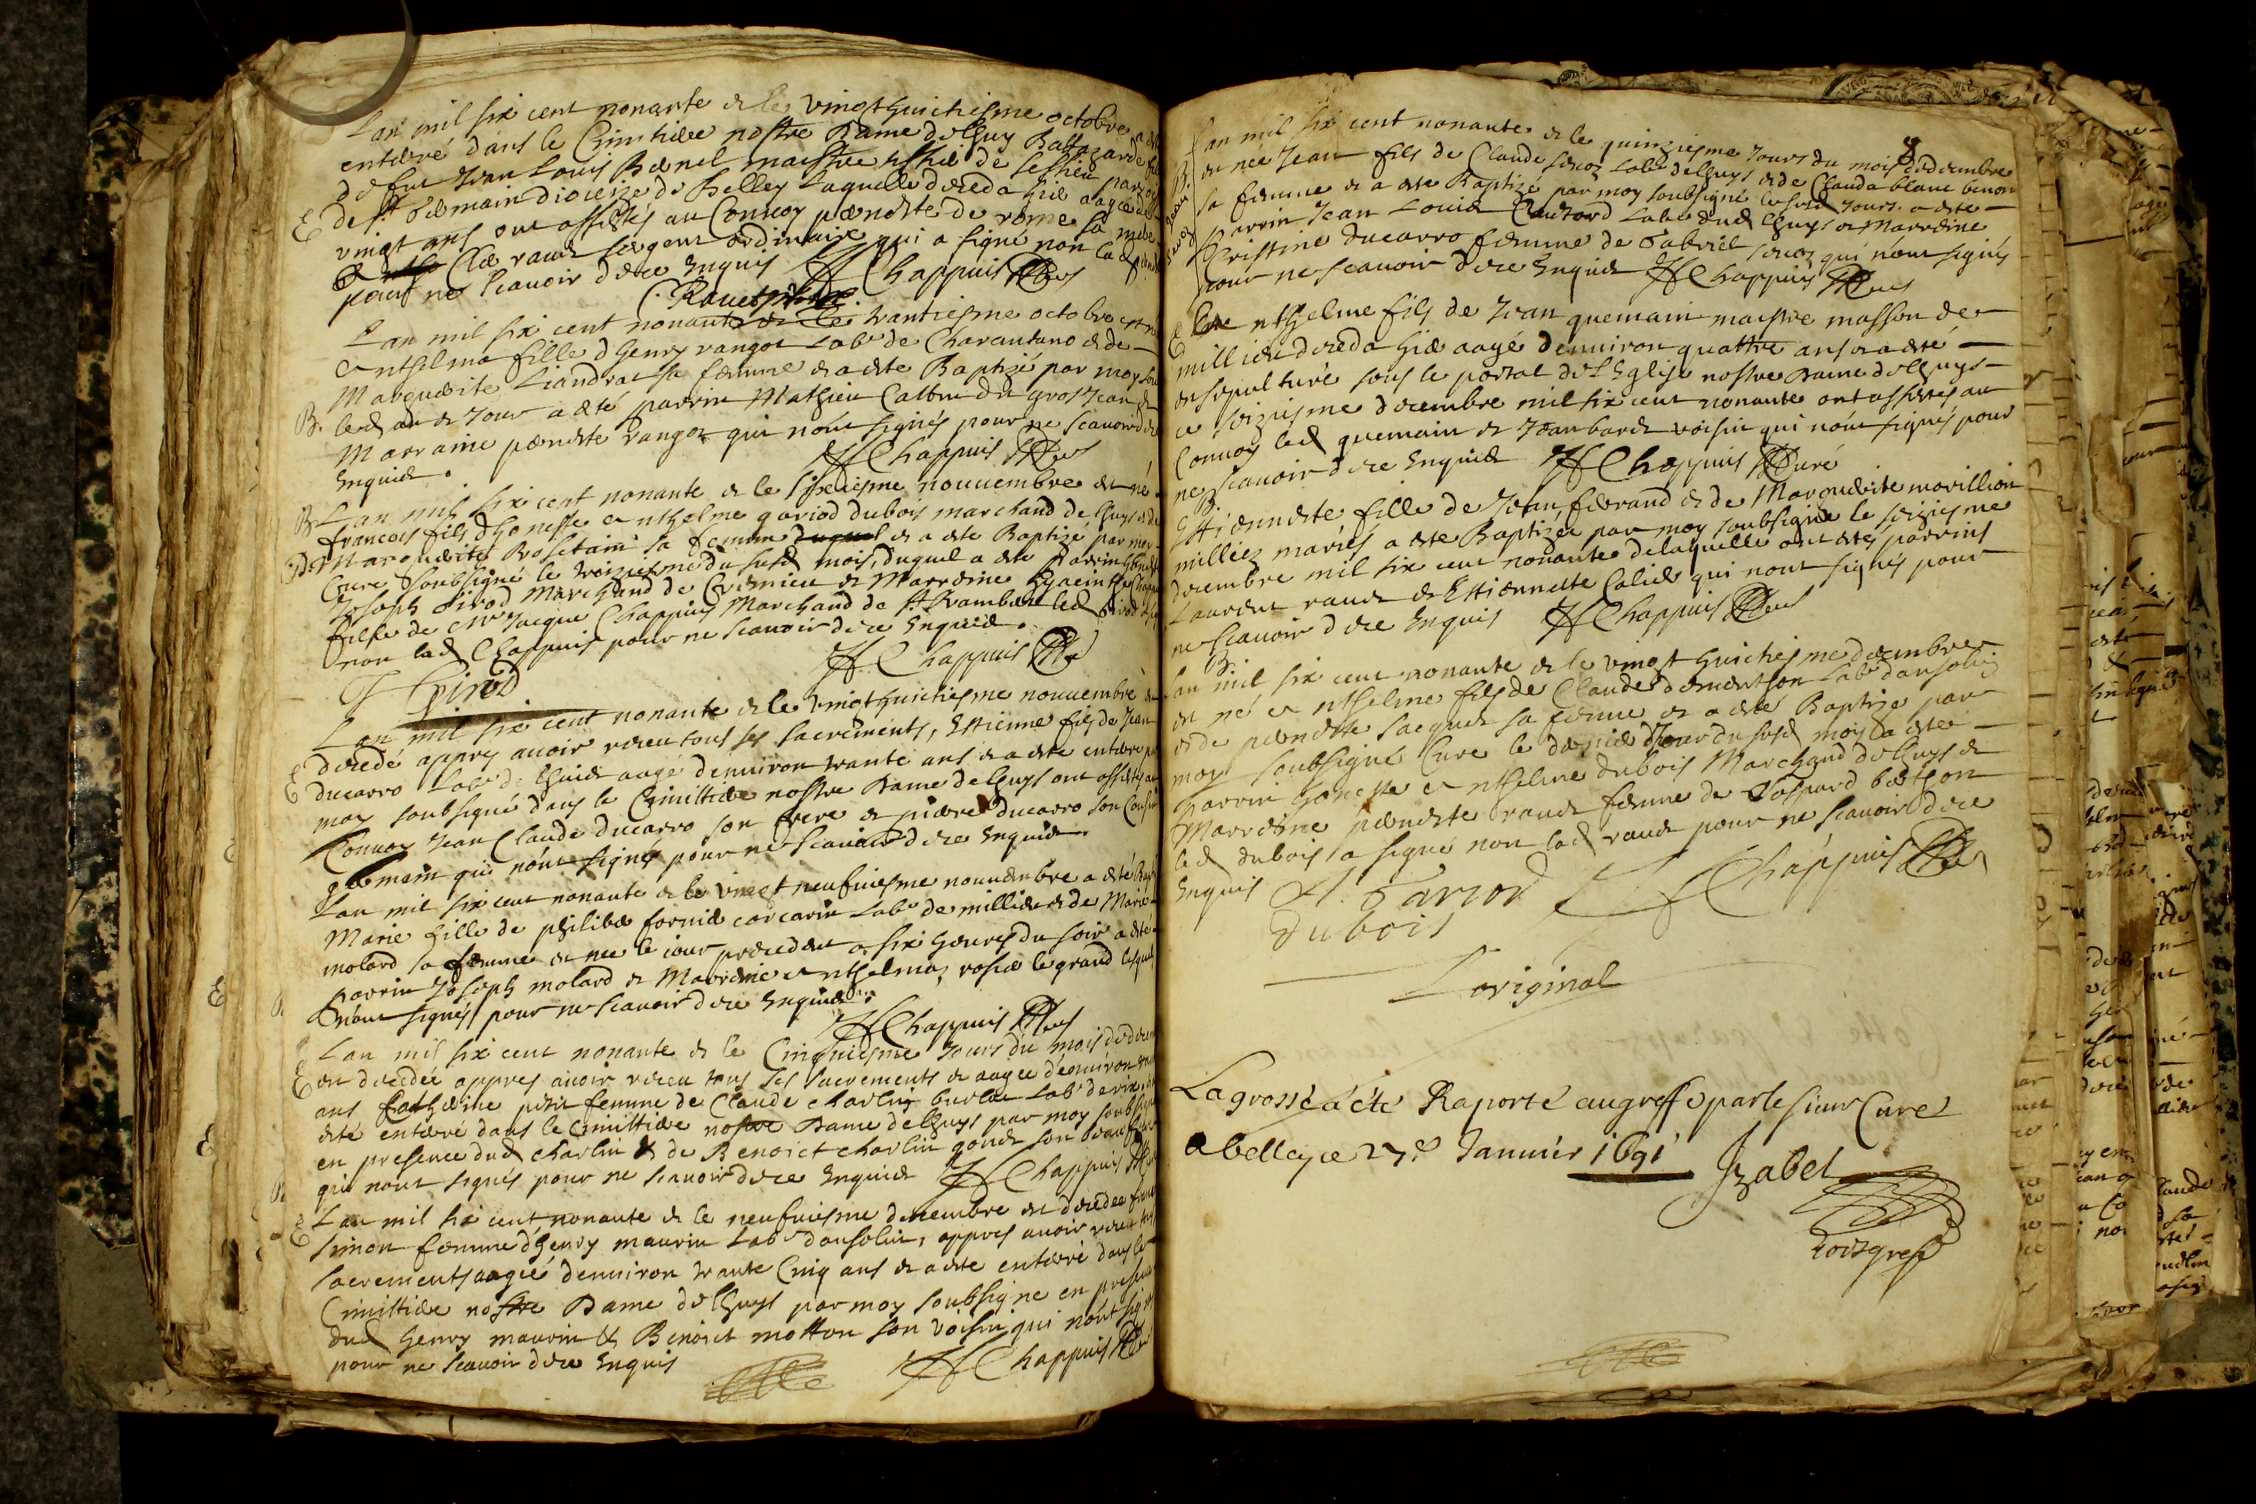 L'an mil six cent nonante & le vingt huictiesme octobre a esté
enterré dans le Cimitiere nostre Dame de lhuys Baltazarde fille
de feu Jean Louis maistre de Lessieu
de St Germain dioceze de Belley laquelle deceda hier aagée de
vingt ans ont assistés au Convoy pernette de rome sa mere
& Cle raud sergent ordinaire qui a signé non lad
pour ne scavoir dere Enquis JH Chappuis Cure
Raud
L'an mil six cent nonante & le trantiesme octobre est né
Anthelma fille d'henry rangot Labr de Charantano & de
Marguerite Liandrat sa femme & a esté Baptizé par moy
led an & jour a esté parrin Mathieu Callin dit gros Jean &
Marraine pernette rangot qui n'ont signés pour ne scavoir dere
Enquis.
JH Chappuis Cure
B. L'an mil six cent nonante & le sixiesme nouvembre est né
francois fils d'honeste Anthelme gariod dubois marchand de lhuys & de
Marguerite Rosetain sa femme & a esté Baptizé par moy
Cure soubsigné le treiziesme du susd mois, duquel a esté Parrin
Joseph Girod Marchand de Cremieu & Marreine hyacinthe Chappuis
fille de Mr Jacque Chappuis Marchand de St Rambert led Girod a signé
non lad Chappuis pour ne scavoir dere Enquis.
JH Chappuis Cure
J Girod
L'an mil six cent nonante & le vingt huictiesme nouvembre est
E decedé appres avoir receu tous ses sacrements, Ettienne fils de Jean
ducarro Labr de lhuis aagé denuiron trante ans & a esté enterré par
moy soubsigné dans le Cimittiere nostre Dame de lhuys ont assistés au
Convoy Jean Claude ducarro son frere & pierre ducarro son Cousin
germain qui n'ont signés pour ne scavoir dere Enquis.
L'an mil six cent nonante & le vingt neufuiesme nouuembre a esté Baptizé
Marie fille de philibe fornier carcarin Labr de millieu & de Marie
molard sa femme & née le iour precedent a six heures du soir a esté
parrin Joseph molard & Marreine Anthelma rosier le grand lesquels
n'ont signés pour ne scavoir dere Enquis.
JH Chappuis Cure
L'an mil six cent nonante & le Cinquiesme Jours du mois de decembre
E est decedée appres avoir receu tous ses sacrements & aagée denuiron
ans Catherine petit femme de Claude charlin burlat Labr de rix
esté enterré dans le Cimittiere nostre Dame de lhuys par moy soubsigné
en presence dud charlin & de Benoict charlin gendre son beau frere
qui n'ont signés pour ne scavoir dere Enquis JH Chappuis Cure
E L'an mil six cent nonante & le neufuiesme decembre est decedee
simon femme d'henry maurin Labr d'ansolin, appres avoir receu tous
sacrements aagée denuiron trante Cinq ans & a esté enterré dans le
Cimittiere nostre Dame de lhuys par moy soubsigne en presence
dud henry maurin & Benoict motton son voisin qui n'ont signés
pour ne scavoir dere Enquis
JH Chappuis Cure
L'an mil six cent nonante & le quinziesme Jours du mois de decembre
B. est née Jean fils de Claude Labr de lhuys & de Clauda blanc benon
sa femme & a esté Baptizé par moy soubsigné le susd Jours a esté
parrin Jean Louis Labr dud lhuys & Marreine
Cristine ducarro femme de Gabriel qui n'ont signés
pour ne scavoir dere Enquis JH Chappuis Cure
E Anthelme fils de Jean quemain maistre masson de
millieu deceda hier aagé denuiron quattre ans & a esté
ensepulturé sous le portal de l'Eglise nostre Dame de lhuys
ce seiziesme decembre mil six cent nonante ont assistés au
Convoy led quemain & Jean bardet voisin qui n'ont signés pour
ne scavoir dere Enquis JH Chappuis Curé
B.
Ettiennette fille de Jean ferrand & de Marguerite morillion
milliez mariés a esté Baptizée par moy soubsigné le seiziesme
decembre mil six cent nonante de laquelle ont estés parrins
Laurent raud & Ettiennette Calid qui n'ont signés pour
ne scavoir dere Enquis JH Chappuis Cure
B.
L'an mil six cent nonante & le vingt huictiesme decembre
est né Anthelme fils de Claude Labr d'ansolin
& de pernette Jacquet sa femme & a esté Baptizé par
moy soubsigné Cure le dernier Jour du susd moy a esté
Parrin honeste Anthelme dubois Marchand de lhuys &
Marreine pernette raud femme de Gaspard berthon
led dubois a signé non lad raud pour ne scavoir dere
Enquis A. Gariod JH Chappuis Cure
dubois
L'original
La grosse a été Raporté au greffe par le sieur Curé
a belley ce 27e Januier 1691
Jzabel